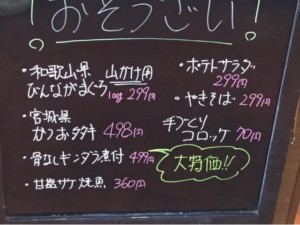 おそうざい!
・和歌山県 山かけ用
びんながまぐろ 100g 299円
宮城県
かつおタタキ 498円
・骨なしギンダラ煮付 499円
・甘塩サケ焼魚 360円
・ポテトサラダ
299円
・やきそば・299円
手づくり
コロッケ 90円
大特価!!